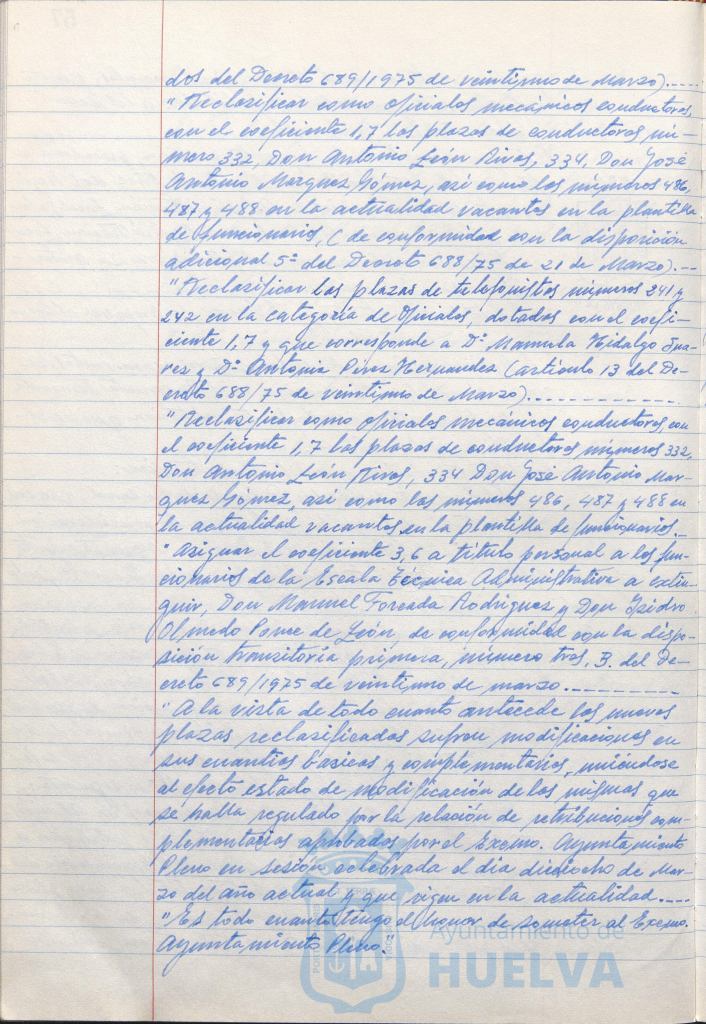 dos del Decreto 689/1975 de veintiuno de Marzo).----
"Reclasificar como oficiales mecánicos conductores,
con el coeficiente 1,7 las plazas de conductores nú-
mero 332, Don Antonio León Rivas, 334, Don José
Antonio Marquez Gómez, asi como los números 486,
487 y 488 en la actualidad vacantes en la plantilla
de funcionarios, (de conformidad con la disposición
adicional 5ª del Decreto 688/75 de 21 de Marzo).--
"Reclasificar las plazas de telefonistas números 241 y
242 en la categoría de Oficiales, dotadas con el coefi-
ciente 1,7 y que corresponde a Dª Manuela Hidalgo Sua-
rez y Dª Antonia Pérez Hernandez (artículo 13 del De-
creto 688/75 de veintiuno de Marzo).------------
"Reclasificar como oficiales mecánicos conductores, con
el coeficiente 1,7 las plazas de conductores números 332,
Don Antonio León Rivas, 334 Don José Antonio Mar-
quez Gómez, asi como los números 486, 487 y 488 en
la actualidad vacantes en la plantilla de funcionarios..
"Asignar el coeficiente 3,6 a título personal a los fun-
cionarios de la Escala Técnica Administrativa a extin-
guir, Don Manuel Forcada Rodriguez y Don Isidro
Olmedo Ponce de León, de conformidad con la dispo-
sición transitoria primera, número tres, B. del De-
creto 689/1975 de veintiuno de marzo.----------
"A la vista de todo cuanto antecede las nuevas
plazas reclasificadas sufren modificaciones en
sus cuantías básicas y complementarios, uniéndose
al efecto estado de modificación de las mismas que
se halla regulado por la relación de retribuciones com-
plementarias aprobadas por el Excmo. Ayuntamiento
Pleno en sesión celebrada el día dieciocho de Mar-
zo del año actual y que vigen en la actualidad.----
"Es todo cuanto tengo el honor de someter al Excmo.
Ayuntamiento Pleno."
Ayuntamiento de
HUELVA